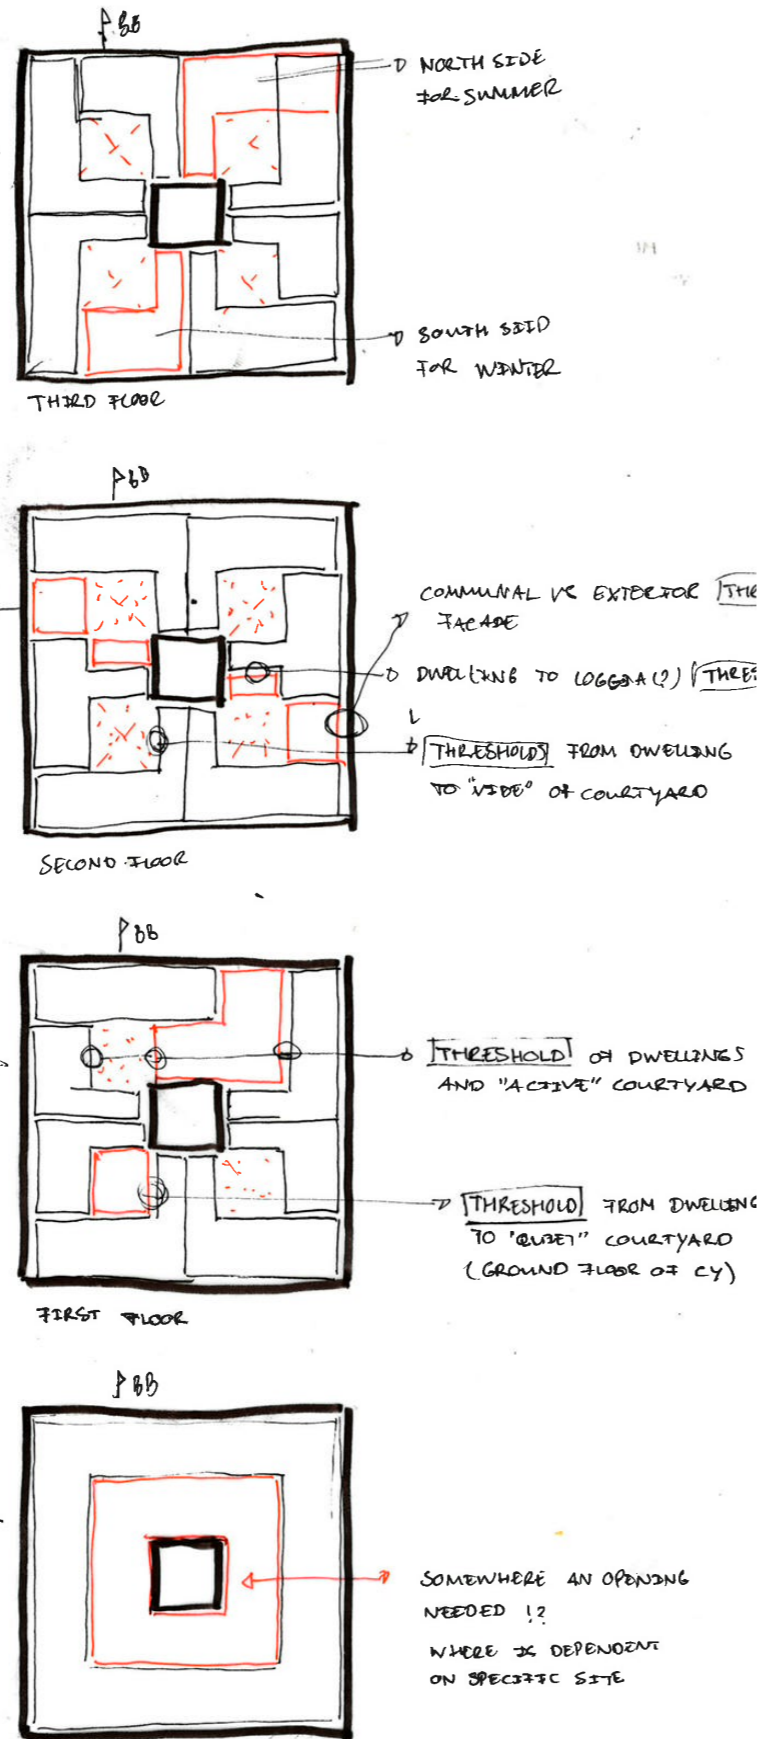 BB
NORTH SIDE
FOR SUMMER
SOUTH SEID
FOR WINTER
THIRD FLOOR
BB
COMMUNAL VS EXTERIOR THR
FACADE
DWELLING TO LOGGIA (?) THRES
THRESHOLDS FROM DWELLING
TO "VIDE" OF COURTYARD
SECOND FLOOR
BB
THRESHOLD OF DWELLINGS
AND "ACTIVE" COURTYARD
THRESHOLD FROM DWELLING
TO "QUIET" COURTYARD
(GROUND FLOOR OF CY)
FIRST FLOOR
BB
SOMEWHERE AN OPENING
NEEDED !?
WHERE IS DEPENDENT
ON SPECIFIC SITE